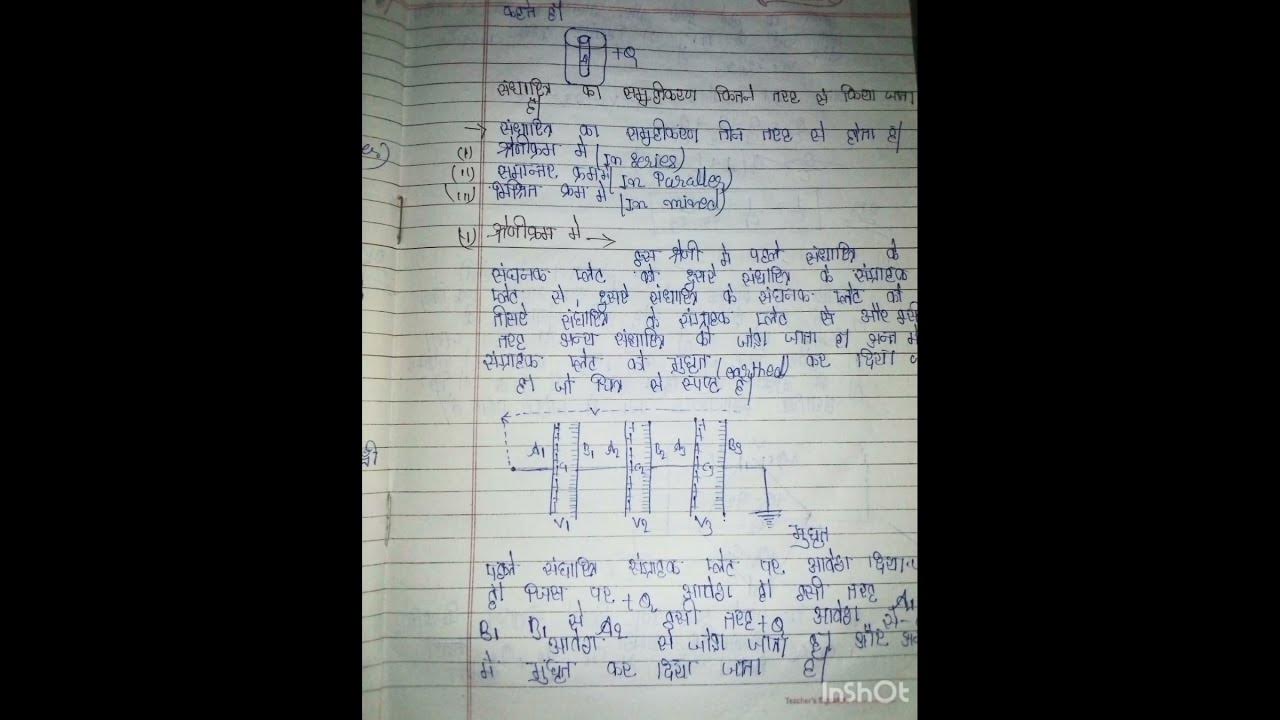 कहते हैं।
+Q
संधारित्र का समुहीकरण कितने तरह से किया जाता
है।
→ संधारित्र का समुहीकरण तीन तरह से होता है।
(i) श्रेणीक्रम में (In series)
(ii) समान्तर क्रम में (In Parallel)
(iii) मिश्रित क्रम में (In mixed)
(i) श्रेणीक्रम में →
इस श्रेणी में पहले संधारित्र के
संघनक प्लेट को दुसरे संधारित्र के संग्राहक
प्लेट से, दुसरे संधारित्र के संघनक प्लेट को
तीसरे संधारित्र के संग्राहक प्लेट से और इसी
तरह अन्य संधारित्र को जोड़ा जाता है। अन्त में
संग्राहक प्लेट को भुधृत (earthed) कर दिया
है। जो चित्र से स्पष्ट है।
V
A1 B1 A2 B2 A3 B3
C1 C2 C3
V1 V2 V3
भुधृत
पहले संधारित्र संग्राहक प्लेट पर आवेश दिया
है। जिस पर +Q आवेश है। इसी तरह A1
B1 B1 से A2 इसी तरह +Q आवेश से
आवेश से जोड़ा जाता है। और
में भुधृत कर दिया जाता है।
Teacher's
InShOt